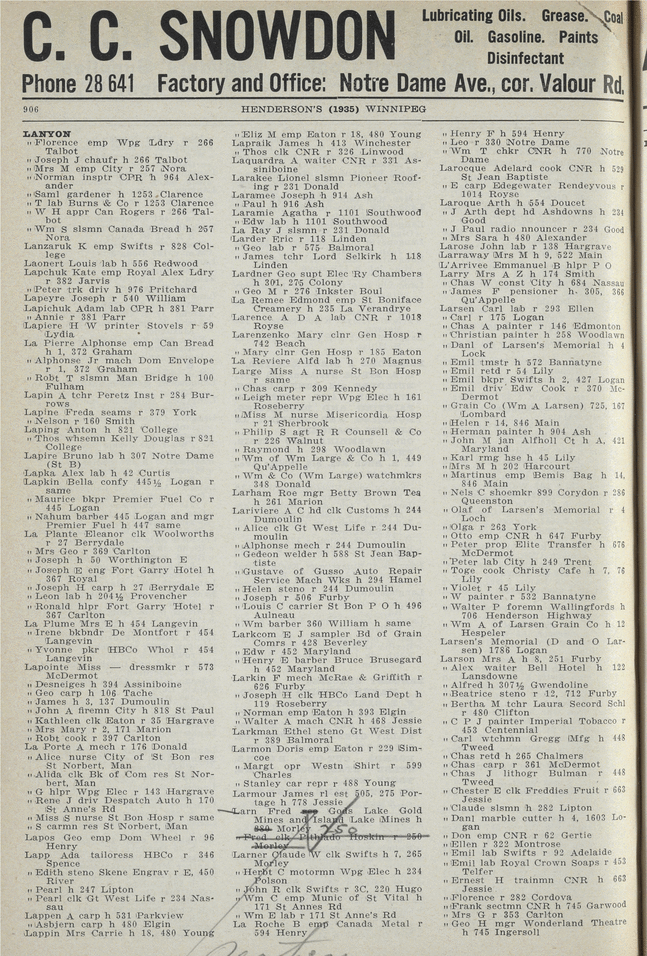 C. C. SNOWDON
Lubricating Oils. Grease. Coal
Oil. Gasoline. Paints
Disinfectant
Phone 28 641 Factory and Office: Notre Dame Ave., cor. Valour Rd.
906 HENDERSON'S (1935) WINNIPEG
LANYON
" Florence emp Wpg Ldry r 266
Talbot
" Joseph J chaufr h 266 Talbot
" Mrs M emp City r 257 Nora
" Norman insptr CPR h 964 Alex-
ander
" Saml gardener h 1253 Clarence
" T lab Burns & Co r 1253 Clarence
" W H appr Can Rogers r 266 Tal-
bot
" Wm S slsmn Canada Bread h 257
Nora
Lanzaruk K emp Swifts r 828 Col-
lege
Laonert Louis lab h 556 Redwood
Lapchuk Kate emp Royal Alex Ldry
r 382 Jarvis
" Peter trk driv h 976 Pritchard
Lapeyre Joseph r 540 William
Lapichuk Adam lab CPR h 381 Parr
" Annie r 381 Parr
Lapiere H W printer Stovels r 59
Lydia
La Pierre Alphonse emp Can Bread
h 1, 372 Graham
" Alphonse Jr mach Dom Envelope
r 1, 372 Graham
" Robt T slsmn Man Bridge h 100
Fulham
Lapin A tchr Peretz Inst r 284 Bur-
rows
Lapine Freda seams r 379 York
" Nelson r 160 Smith
Laping Anton h 821 College
" Thos whsemn Kelly Douglas r 821
College
Lapire Bruno lab h 307 Notre Dame
(St B)
Lapka Alex lab h 42 Curtis
Lapkin Bella confy 445½ Logan r
same
" Maurice bkpr Premier Fuel Co r
445 Logan
" Nahum barber 445 Logan and mgr
Premier Fuel h 447 same
La Plante Eleanor clk Woolworths
r 27 Berrydale
" Mrs Geo r 369 Carlton
" Joseph h 50 Worthington E
" Joseph E eng Fort Garry Hotel h
367 Royal
" Joseph H carp h 27 Berrydale E
" Leon lab h 204½ Provencher
" Ronald hlpr Fort Garry Hotel r
367 Carlton
La Plume Mrs E h 454 Langevin
" Irene bkbndr De Montfort r 454
Langevin
" Yvonne pkr HBCo Whol r 454
Langevin
Lapointe Miss — dressmkr r 573
McDermot
" Desneiges h 394 Assiniboine
" Geo carp h 106 Tache
" James h 3, 137 Dumoulin
" John A firemn City h 818 St Paul
" Kathleen clk Eaton r 35 Hargrave
" Mrs Mary r 2, 171 Marion
" Robt cook r 397 Carlton
La Porte A mech r 176 Donald
" Alice nurse City of St Bon res
St Norbert, Man
" Alida clk Bk of Com res St Nor-
bert, Man
" G hlpr Wpg Elec r 143 Hargrave
" Rene J driv Despatch Auto h 170
St Anne's Rd
" Miss S nurse St Bon Hosp r same
" S carmn res St Norbert, Man
Lapos Geo emp Dom Wheel r 96
Henry
Lapp Ada tailoress HBCo r 346
Spence
" Edith steno Skene Engrav r E, 450
River
" Pearl h 247 Lipton
" Pearl clk Gt West Life r 234 Nas-
sau
Lappen A carp h 531 Parkview
" Asbjern carp h 480 Elgin
Lappin Mrs Carrie h 18, 480 Young
" Eliz M emp Eaton r 18, 480 Young
Lapraik James h 413 Winchester
" Thos clk CNR r 326 Linwood
Laquardra A waiter CNR r 331 As-
siniboine
Larakee Lionel slsmn Pioneer Roof-
ing r 231 Donald
Laramee Joseph h 914 Ash
" Paul h 916 Ash
Laramie Agatha r 1101 Southwood
" Edw lab h 1101 Southwood
La Ray J slsmn r 231 Donald
Larder Eric r 118 Linden
" Geo lab r 575 Balmoral
" James tchr Lord Selkirk h 118
Linden
Lardner Geo supt Elec Ry Chambers
h 301, 275 Colony
" Geo M r 276 Inkster Boul
La Remee Edmond emp St Boniface
Creamery h 235 La Verandrye
Larence A D A lab CNR r 1018
Royse
Larenzenko Mary clnr Gen Hosp r
742 Beach
" Mary clnr Gen Hosp r 185 Eaton
La Reviere Alfd lab h 270 Magnus
Large Miss A nurse St Bon Hosp
r same
" Chas carp r 309 Kennedy
" Leigh meter repr Wpg Elec h 161
Roseberry
" Miss M nurse Misericordia Hosp
r 21 Sherbrook
" Philip S agt R R Counsell & Co
r 226 Walnut
" Raymond h 298 Woodlawn
" Wm of Wm Large & Co h 1, 449
Qu'Appelle
" Wm & Co (Wm Large) watchmkrs
348 Donald
Larham Roe mgr Betty Brown Tea
h 261 Marion
Lariviere A C hd clk Customs h 244
Dumoulin
" Alice clk Gt West Life r 244 Du-
moulin
" Alphonse mech r 244 Dumoulin
" Gedeon welder h 588 St Jean Bap-
tiste
" Gustave of Gusso Auto Repair
Service Mach Wks h 294 Hamel
" Helen steno r 244 Dumoulin
" Joseph r 506 Furby
" Louis C carrier St Bon P O h 496
Aulneau
" Wm barber 360 William h same
Larkcom E J sampler Bd of Grain
Comrs r 428 Beverley
" Edw r 452 Maryland
" Henry E barber Bruce Brusegard
h 452 Maryland
Larkin F mech McRae & Griffith r
626 Furby
" Joseph H clk HBCo Land Dept h
119 Roseberry
" Norman emp Eaton h 393 Elgin
" Walter A mach CNR h 468 Jessie
Larkman Ethel steno Gt West Dist
r 389 Balmoral
Larmon Doris emp Eaton r 229 Sim-
coe
" Margt opr Westn Shirt r 599
Charles
" Stanley car repr r 488 Young
Larmour James rl est 505, 275 Por-
tage h 778 Jessie
Larn Fred Gods Lake Gold
Mines and Island Lake Mines h
Morley 250
" Fred clk Pitblado Hoskin r 250
Morley
Larner Claude W clk Swifts h 7, 265
Morley
" Herbt C motormn Wpg Elec h 234
Polson
" John R clk Swifts r 3C, 220 Hugo
" Wm C emp Munic of St Vital h
171 St Annes Rd
" Wm E lab r 171 St Anne's Rd
La Roche B emp Canada Metal r
594 Henry
" Henry F h 594 Henry
" Leo r 330 Notre Dame
" Wm T chkr CNR h 770 Notre
Dame
Larocque Adelard cook CNR h 529
St Jean Baptiste
" E carp Edgewater Rendevous r
1014 Royse
Laroque Arth h 554 Doucet
" J Arth dept hd Ashdowns h 234
Good
" J Paul radio nnouncer r 234 Good
" Mrs Sara h 480 Alexander
Larose John lab r 138 Hargrave
Larraway Mrs M h 9, 522 Main
L'Arrivee Emmanuel B hlpr P O
Larry Mrs A Z h 174 Smith
" Chas W const City h 684 Nassau
" James F pensioner h 305, 366
Qu'Appelle
Larsen Carl lab r 293 Ellen
" Carl r 175 Logan
" Chas A painter r 146 Edmonton
" Christian painter h 258 Woodlawn
" Danl of Larsen's Memorial h 4
Lock
" Emil tmstr h 572 Bannatyne
" Emil retd r 54 Lily
" Emil bkpr Swifts h 2, 427 Logan
" Emil driv Edw Cook r 370 Mc-
Dermot
" Grain Co (Wm A Larsen) 725, 167
Lombard
" Helen r 14, 846 Main
" Herman painter h 904 Ash
" John M jan Alfholl Ct h A, 421
Maryland
" Karl rmg hse h 45 Lily
" Mrs M h 202 Harcourt
" Martinus emp Bemis Bag h 14,
846 Main
" Nels C shoemkr 899 Corydon r 286
Queenston
" Olaf of Larsen's Memorial r 4
Loch
" Olga r 263 York
" Otto emp CNR h 647 Furby
" Peter prop Elite Transfer h 676
McDermot
" Peter lab City h 249 Trent
" Toge cook Christy Cafe h 7, 76
Lily
" Violet r 45 Lily
" W painter r 532 Bannatyne
" Walter P foremn Wallingfords h
706 Henderson Highway
" Wm A of Larsen Grain Co h 12
Hespeler
Larsen's Memorial (D and O Lar-
sen) 1786 Logan
Larson Mrs A h 8, 251 Furby
" Alex waiter Bell Hotel h 122
Lansdowne
" Alfred h 307½ Gwendoline
" Beatrice steno r 12, 712 Furby
" Bertha M tchr Laura Secord Schl
r 480 Clifton
" C P J painter Imperial Tobacco r
453 Centennial
" Carl wtchmn Gregg Mfg h 448
Tweed
" Chas retd h 265 Chalmers
" Chas carp r 361 McDermot
" Chas J lithogr Bulman r 448
Tweed
" Chester E clk Freddies Fruit r 663
Jessie
" Claude slsmn h 282 Lipton
" Danl marble cutter h 4, 1603 Lo-
gan
" Don emp CNR r 62 Gertie
" Ellen r 322 Montrose
" Emil lab Swifts r 92 Adelaide
" Emil lab Royal Crown Soaps r 453
Telfer
" Ernest H trainmn CNR h 663
Jessie
" Florence r 282 Cordova
" Frank sectmn CNR h 745 Garwood
" Mrs G r 353 Carlton
" Geo H mgr Wonderland Theatre
h 745 Ingersoll